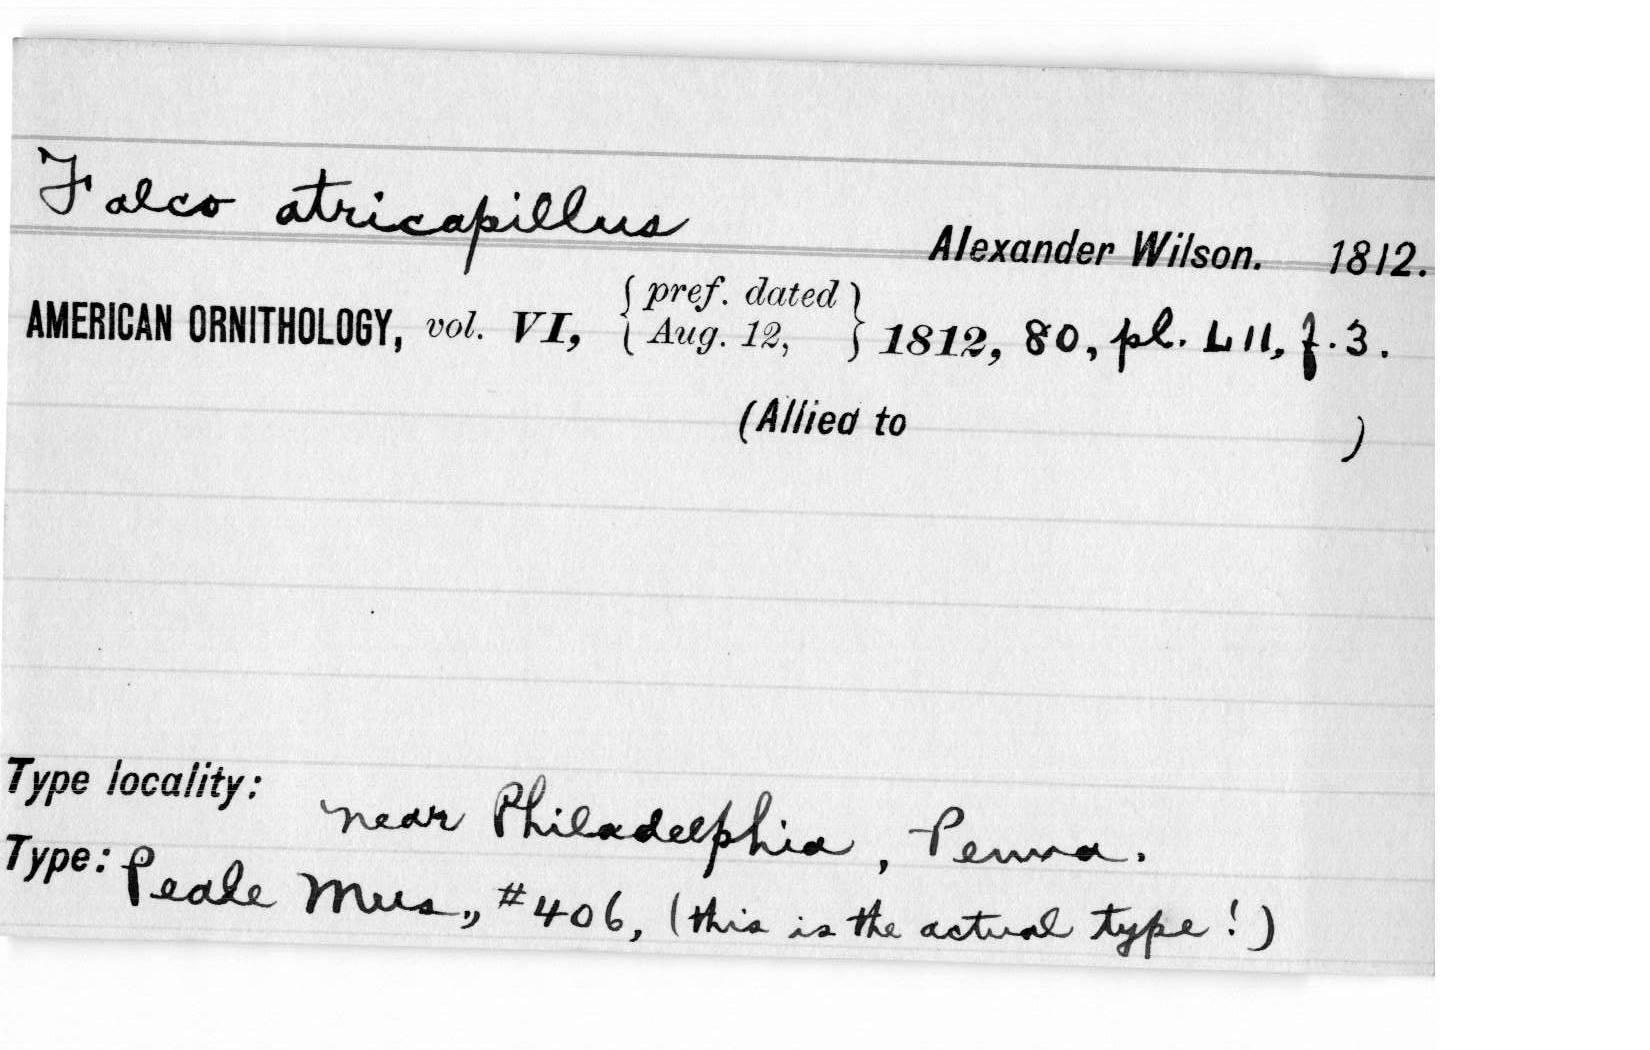 Falco atricapillus
Alexander Wilson. 1812.
AMERICAN ORNITHOLOGY, vol. VI, { pref. dated Aug. 12, } 1812, 80, pl. LII, f. 3.
(Allied to )
Type locality: near Philadelphia, Penna.
Type: Peale Mus., #406, (this is the actual type!)